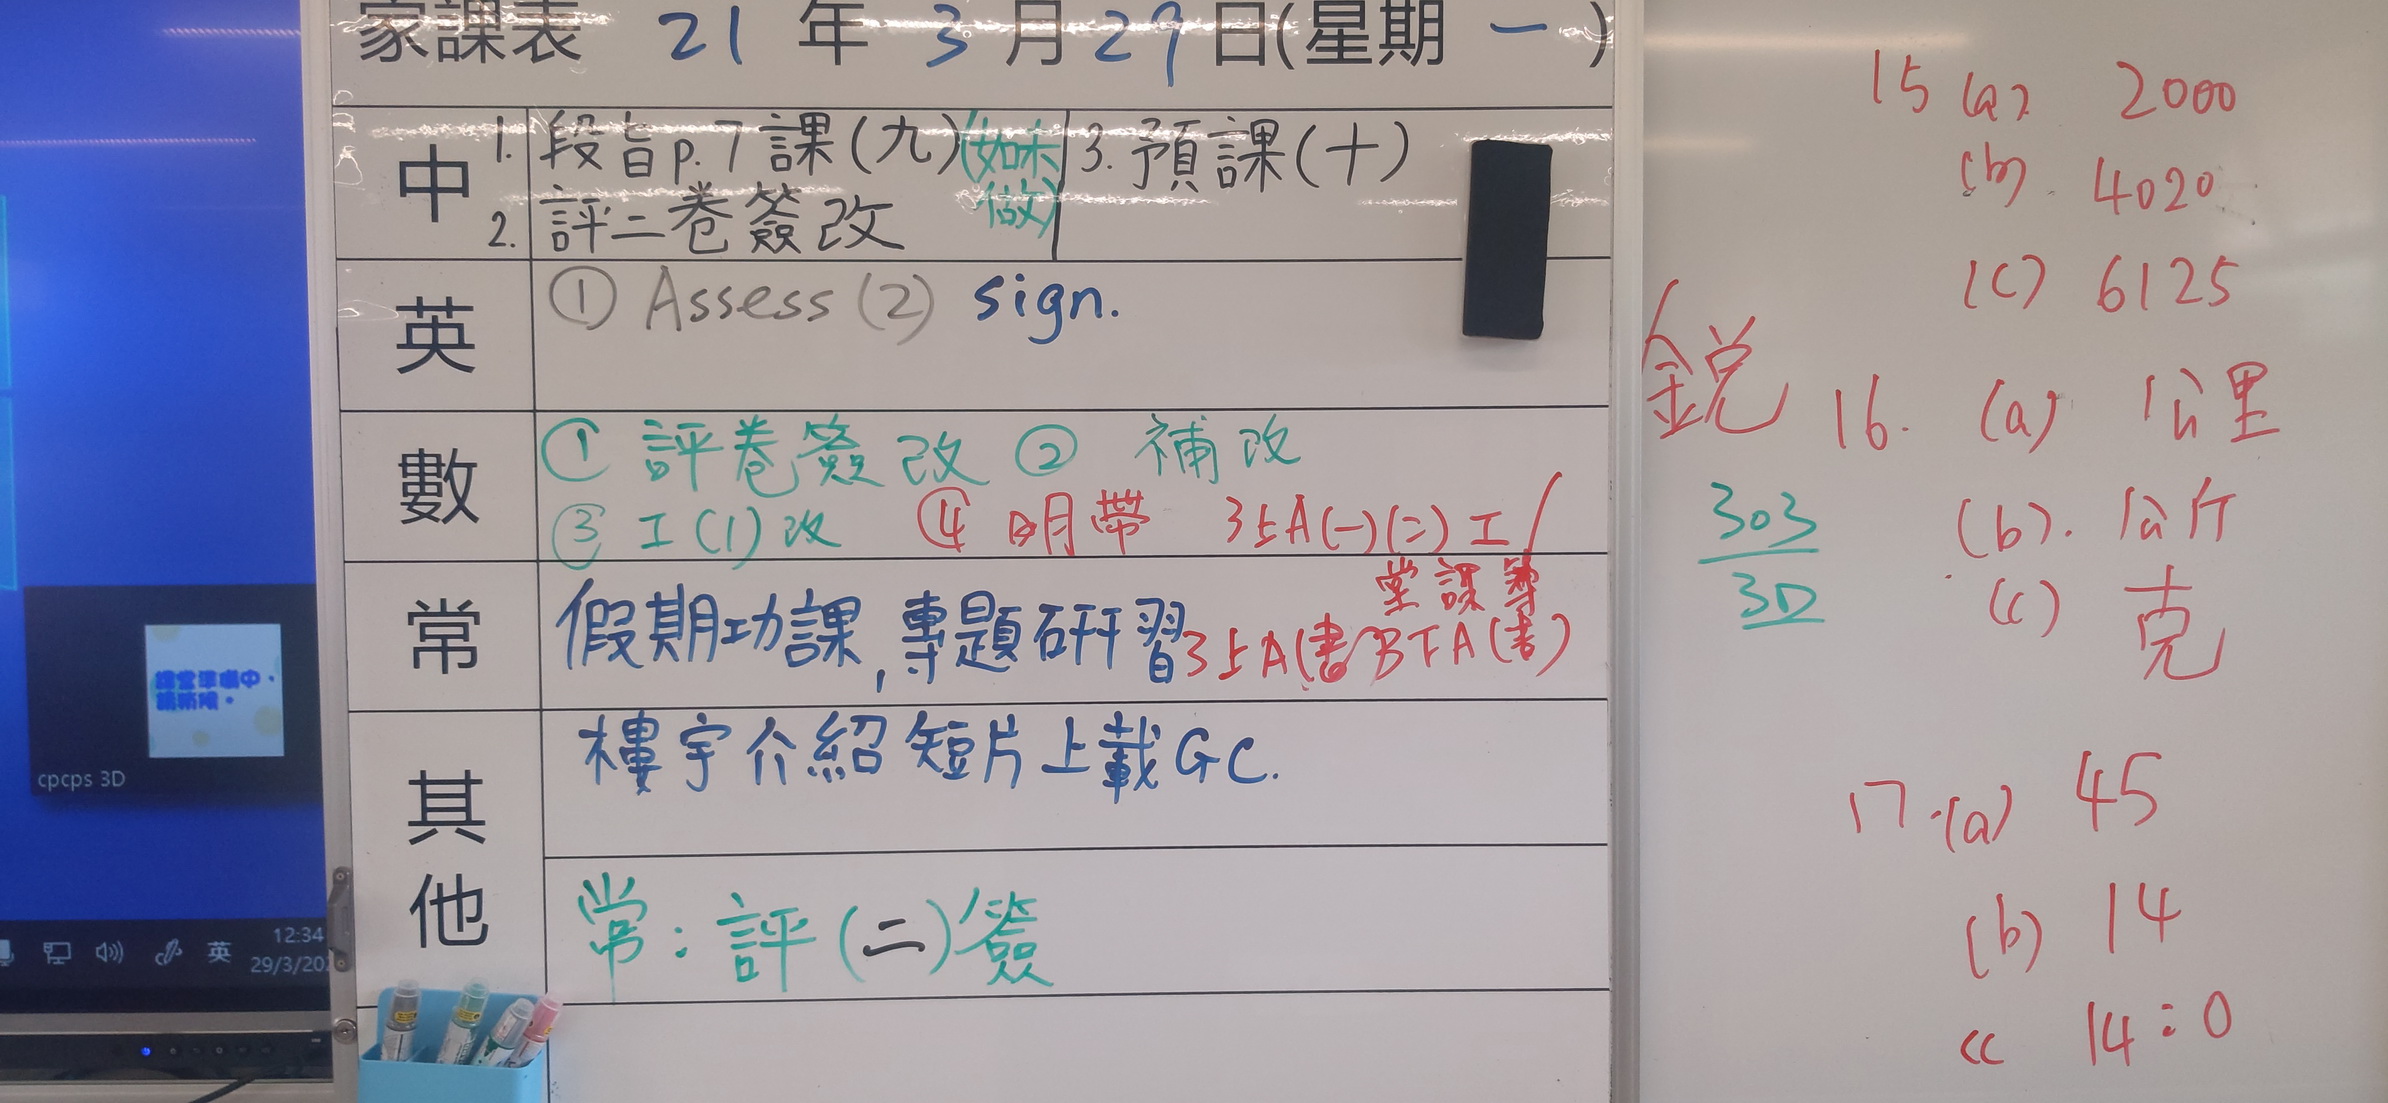 家課表 21 年 3 月 29 日(星期 一 )
中
1. 段旨p.7課(九)(如未做)
2. 評二卷簽改
3. 預課(十)
英
① Assess (2) sign.
數
① 評卷簽改 ② 補改
③ 工(1)改 ④ 明帶 3上A(一)(二)工
堂課簿
3上A(書) 3下A(書)
常
假期功課,專題研習
其他
樓宇介紹短片上載GC.
常:評(二)簽
課堂準備中,
請稍候。
cpcps 3D
英
12:34
29/3/20
銳
303
3D
15 (a) 2000
(b) 4020
(c) 6125
16. (a) 公里
(b). 公斤
(c) 克
17.(a) 45
(b) 14
14:0